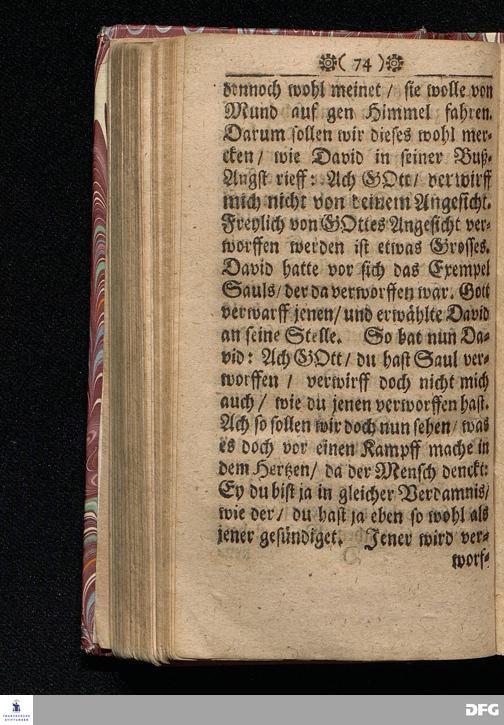 ( 74 )
dennoch wohl meinet / sie wolle von
Mund auf gen Himmel fahren.
Darum sollen wir dieses wohl mer-
cken / wie David in seiner Buß-
Angst rieff: Ach GOtt / verwirff
mich nicht von deinem Angesicht.
Freylich von GOttes Angesicht ver-
worffen werden ist etwas Grosses.
David hatte vor sich das Exempel
Sauls / der da verworffen war. Gott
verwarff jenen / und erwählte David
an seine Stelle. So bat nun Da-
vid: Ach GOtt / du hast Saul ver-
worffen / verwirff doch nicht mich
auch / wie du jenen verworffen hast.
Ach so sollen wir doch nun sehen / was
es doch vor einen Kampff mache in
dem Hertzen / da der Mensch denckt:
Ey du bist ja in gleicher Verdamnis /
wie der / du hast ja eben so wohl als
jener gesündiget. Jener wird ver-
worf-
FRANCKESCHE
STIFTUNGEN
DFG